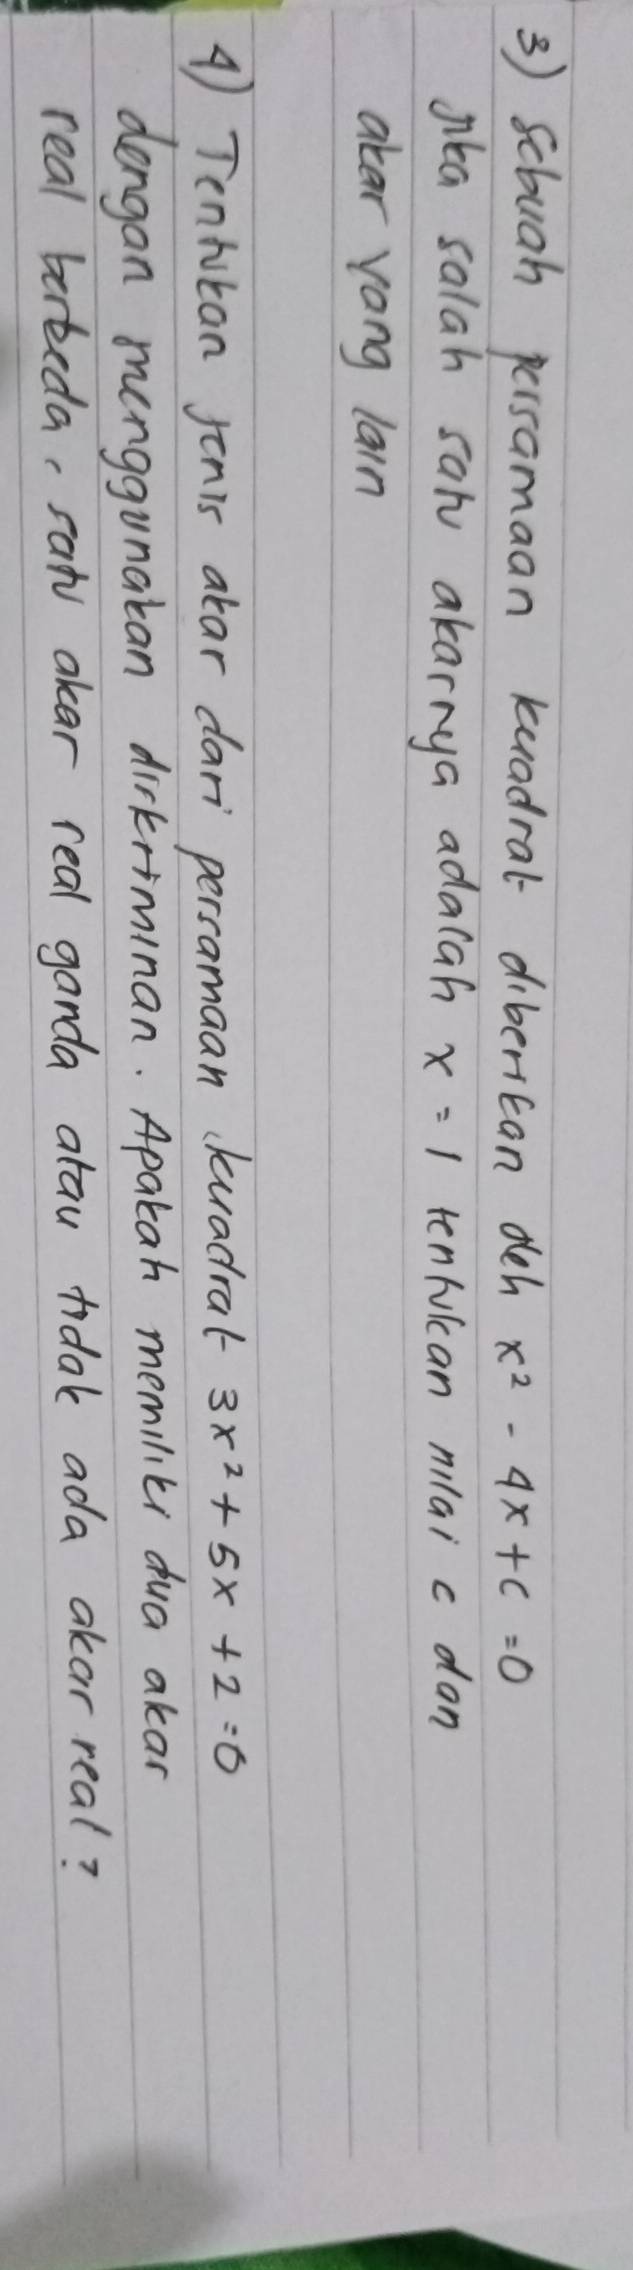 3) Sebuah persamaan kuadrat diberikan oleh x² - 4x + c = 0
jika salah satu akarnya adalah x = 1 tentukan nilai c dan
akar yang lain
4) Tentukan jenis akar dari persamaan kuadrat 3x² + 5x + 2 = 0
dengan menggunakan diskriminan. Apakah memiliki dua akar
real berbeda, satu akar real ganda atau tidak ada akar real?